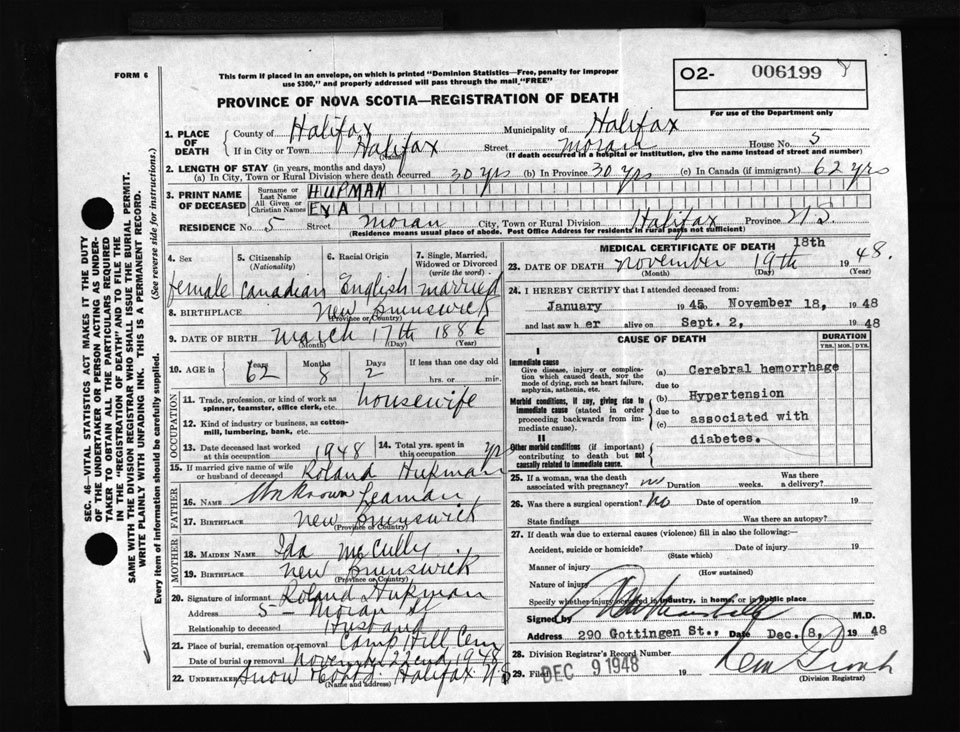 FORM 6
This form if placed in an envelope, on which is printed "Dominion Statistics—Free, penalty for improper
use $300," and properly addressed will pass through the mail, "FREE"
O2- 006199
For use of the Department only
PROVINCE OF NOVA SCOTIA—REGISTRATION OF DEATH
1. PLACE OF DEATH { County of Halifax Municipality of Halifax
If in City or Town Halifax (Name) Street Moran House No. 5
(If death occurred in a hospital or institution, give the name instead of street and number)
2. LENGTH OF STAY (in years, months and days)
(a) In City, Town or Rural Division where death occurred 30 yrs (b) In Province 30 yrs (c) In Canada (if immigrant) 62 yrs
3. PRINT NAME OF DECEASED { Surname or Last Name HUPMAN
All Given or Christian Names EVA
RESIDENCE No. 5 Street Moran City, Town or Rural Division Halifax Province N.S.
(Residence means usual place of abode. Post Office Address for residents in rural parts not sufficient)
4. Sex 5. Citizenship (Nationality) 6. Racial Origin 7. Single, Married, Widowed or Divorced (write the word)
female Canadian English married
8. BIRTHPLACE New Brunswick
(Province or Country)
9. DATE OF BIRTH March 17th 1886
(Month) (Day) (Year)
10. AGE in { Years Months Days If less than one day old
62 8 2 hrs. or min.
OCCUPATION
11. Trade, profession, or kind of work as spinner, teamster, office clerk, etc. housewife
12. Kind of industry or business, as cotton-mill, lumbering, bank, etc.
13. Date deceased last worked at this occupation 1948 14. Total yrs. spent in this occupation yr
15. If married give name of wife or husband of deceased Roland Hupman
FATHER
16. NAME Unknown Leaman
17. BIRTHPLACE New Brunswick
(Province or Country)
MOTHER
18. MAIDEN NAME Ida McCully
19. BIRTHPLACE New Brunswick
(Province or Country)
20. Signature of informant Roland Hupman
Address 5 - Moran St
Relationship to deceased Husband
21. Place of burial, cremation or removal Camp Hill Cem
Date of burial or removal November 22nd 1948
22. UNDERTAKER Snow Halifax N.S
(Name and address)
MEDICAL CERTIFICATE OF DEATH
18th
23. DATE OF DEATH November 19th 1948.
(Month) (Day) (Year)
24. I HEREBY CERTIFY that I attended deceased from:
January 1945, November 18, 1948
and last saw her alive on Sept. 2, 1948
CAUSE OF DEATH DURATION
YRS. MOS. DYS.
I
Immediate cause
Give disease, injury or complication which caused death, NOT the mode of dying, such as heart failure, asphyxia, asthenia, etc.
(a) Cerebral hemorrhage
due to
Morbid conditions, if any, giving rise to immediate cause (stated in order proceeding backwards from immediate cause).
(b) Hypertension
due to
(c) associated with
diabetes.
II
Other morbid conditions (if important) contributing to death but not causally related to immediate cause.
25. If a woman, was the death associated with pregnancy? no Duration weeks. Was there a delivery?
26. Was there a surgical operation? No Date of operation 19
State findings Was there an autopsy?
27. If death was due to external causes (violence) fill in also the following:—
Accident, suicide or homicide? Date of injury 19
(State which)
Manner of injury
(How sustained)
Nature of injury
Specify whether injury occurred in industry, in home, or in public place
Signed by M.D.
Address 290 Gottingen St., Date Dec. 8, 1948
28. Division Registrar's Record Number
29. Filed DEC 9 1948 19
(Division Registrar)
SEC. 46—VITAL STATISTICS ACT MAKES IT THE DUTY
OF THE UNDERTAKER OR PERSON ACTING AS UNDER-
TAKER TO OBTAIN ALL THE PARTICULARS REQUIRED
IN THE "REGISTRATION OF DEATH" AND TO FILE THE
SAME WITH THE DIVISION REGISTRAR WHO SHALL ISSUE THE BURIAL PERMIT.
WRITE PLAINLY WITH UNFADING INK. THIS IS A PERMANENT RECORD.
Every item of information should be carefully supplied. (See reverse side for instructions.)